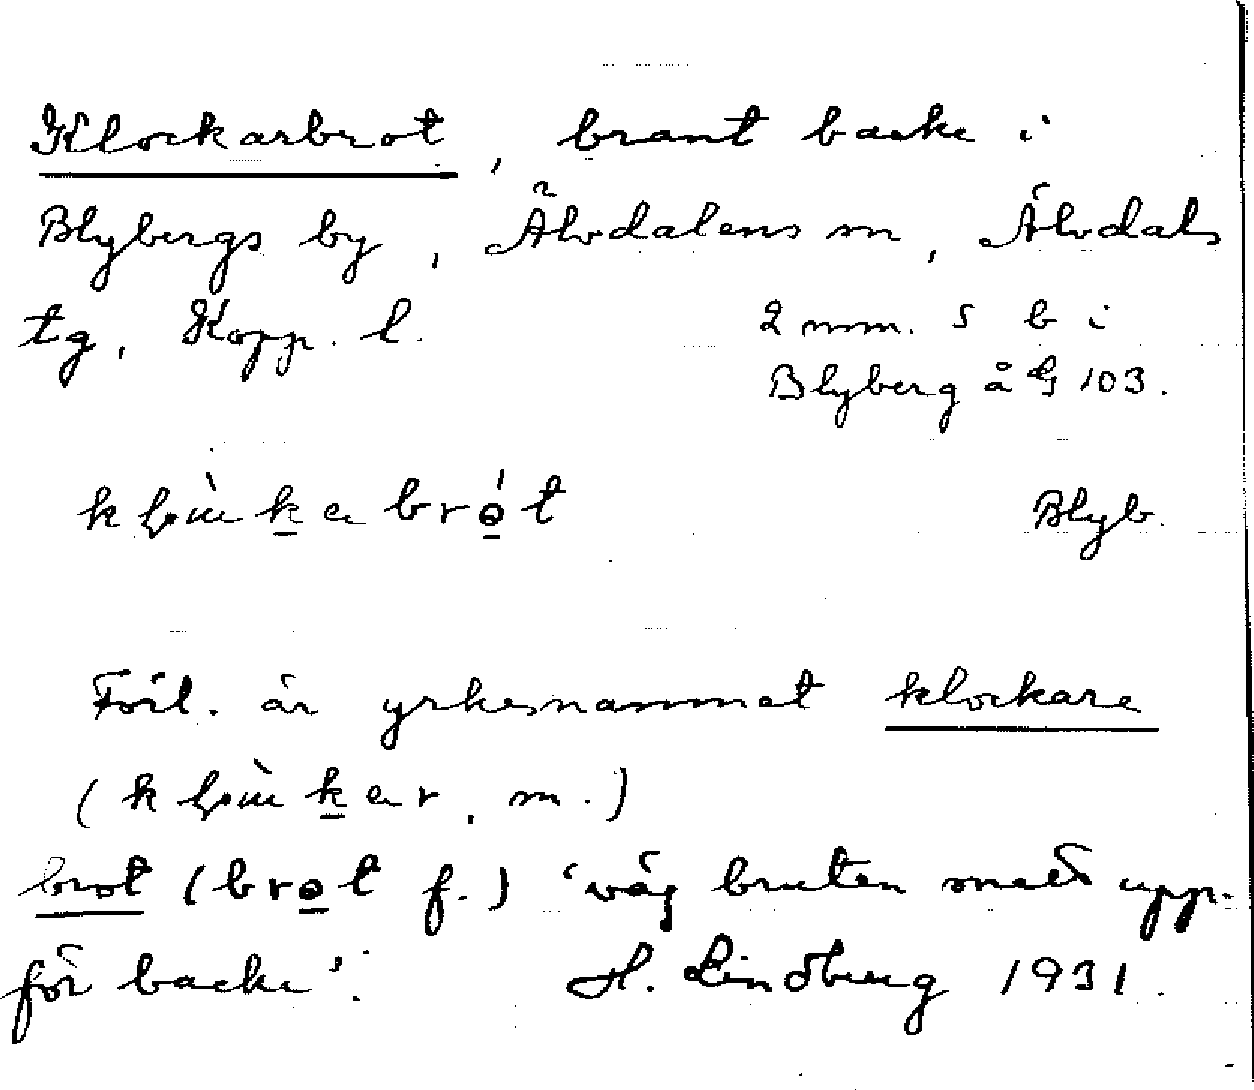 Klockarbrot, brant backe i
Blybergs by, Älvdalens sn, Älvdals
tg, Kopp. l.
2 mm. S b i
Blyberg å G 103.
Blyb.
Förl. är yrkesnamnet klockare
m.)
brot (brot f.) 'väg bruten sned upp-
för backe'. H. Lindberg 1931.